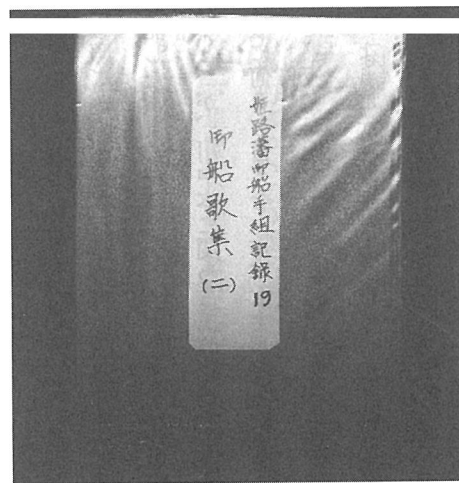 姫路藩御船手組記録19
御船歌集(二)